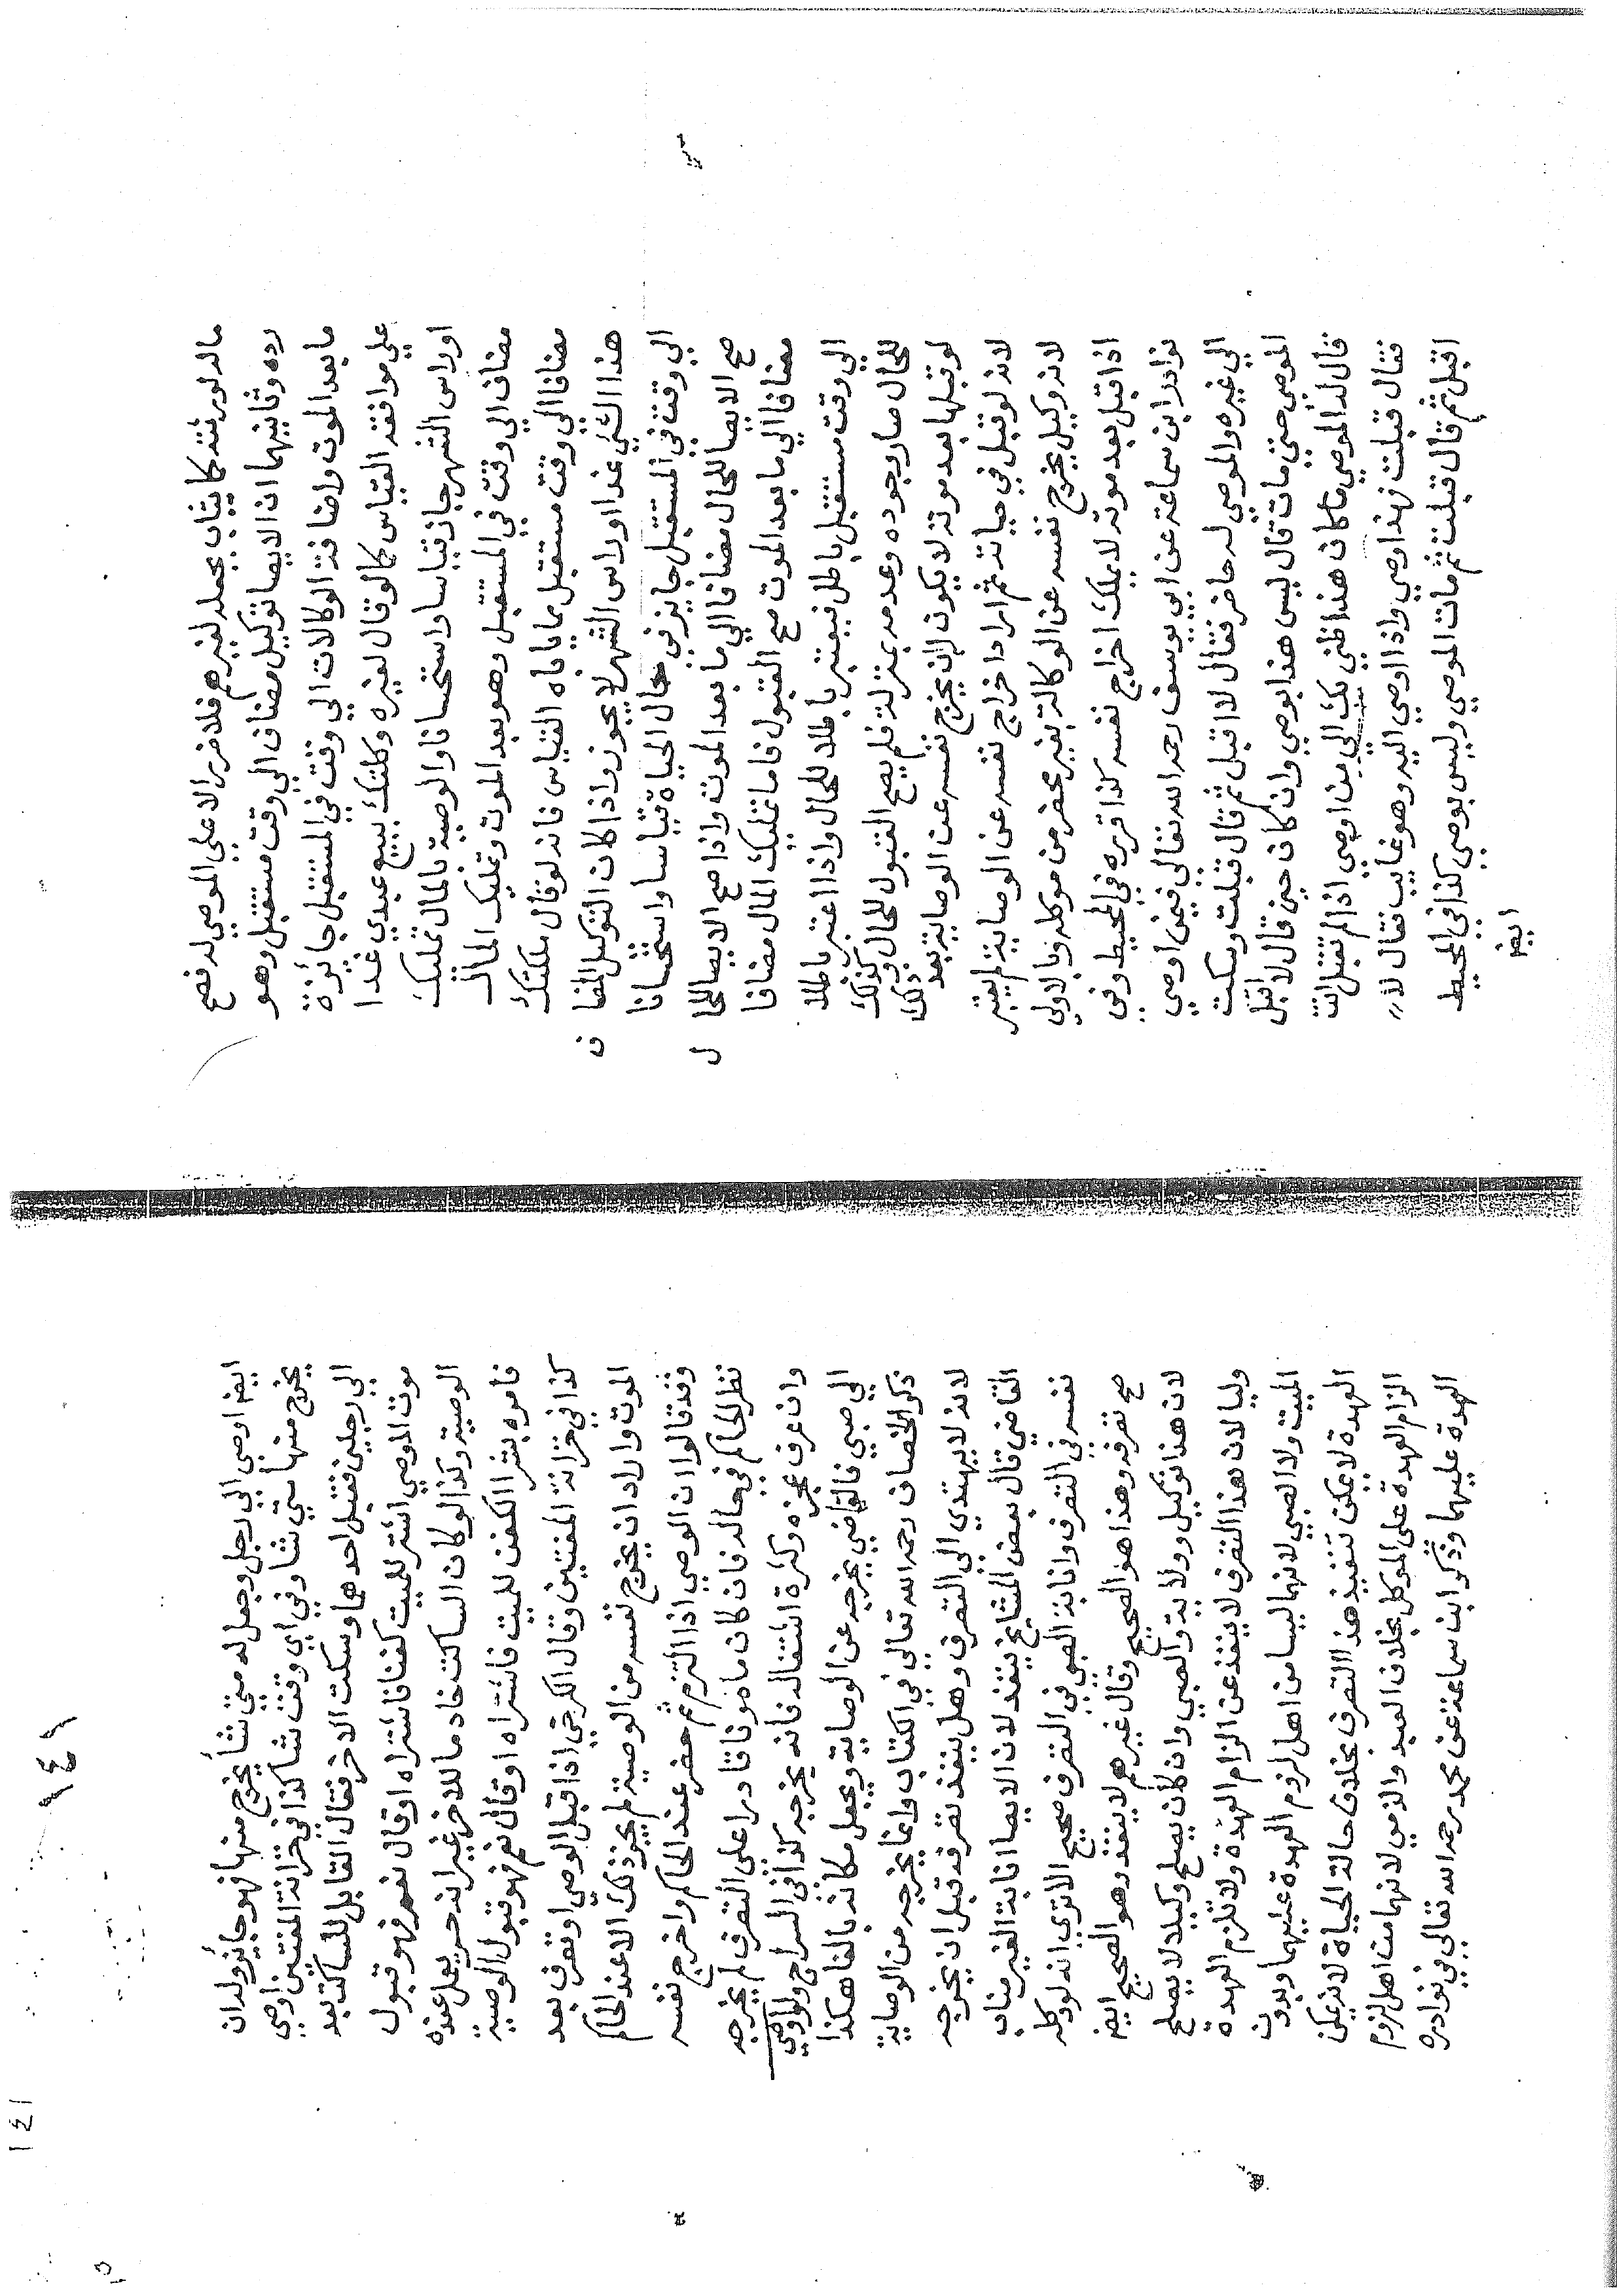 ماله لورثته كما يثاب بجعله لغيرهم فلا ضرر الا علي الموصي له فصح
رده وثانيهما ان الايصا توكيل مضاف الي وقت مستقبل وهو
ما بعد الموت واضافة الوكالات الي وقت في المستقبل جائزة
علي موافقة القياس كما لو قال لغيره وكلتك ببيع عبدي غدا
او راس الشهر جاز قياسا واستحسانا والوصية بالمال تمليك
مضاف الي وقت في المستقبل وهو بعد الموت وتمليك المال
مضافا الي وقت مستقبل مما ياباه القياس فانه لو قال ملكتك
هذا الشي غدا او راس الشهر لا يجوز واذا كان التوكيل المضا ف
الي وقت في المستقبل جايز في حال الحياة قياسا واستحسانا
صح الايصا للحال مضافا الي ما بعد الموت واذا صح الايصا للحا ل
مضافا الي ما بعد الموت صح القبول فاما تمليك المال مضافا
الي وقت مستقبل باطل فيعتبر باطلا للحال واذا اعتبر باطلا
للحال صار وجوده وعدمه بمنزلة فلم يصح القبول للحال وكذلك
لو قبلها بعد موته لا يكون له ان يخرج نفسه عن الوصاية بعد ذلك
لانه لو قبل في حياته ثم اراد اخراج نفسه عن الوصاية لم يعتبر
لانه وكيل يخرج نفسه عن الوكالة بغير محضر من موكله وبالاولي
اذا قبل بعد موته لا يملك اخراج نفسه كذا قرره في المحيط وفي
نوادر ابن سماعة عن ابي يوسف رحمه الله تعالي فيمن اوصي
الي غيره والموصي له حاضر فقال لا اقبل ثم قال قبلت وسكت
الموصي حتي مات قال ليس هذا بوصي وان كان حين قال لا اقبل
قال له الموصي ما كان هذا ظني بك الي من اوصي اذا لم تقبل انت
فقال قبلت فهذا وصي واذا اوصي اليه وهو غايب فقال لا
اقبل ثم قال قبلت ثم مات الموصي وليس بوصي كذا في المحيط
ايضا
١٤١
ايضا اوصي الي رجل وجعل له متي شأ يخرج منها فهو جائز وله ان
يخرج منها متي شا وفي اي وقت شا كذا في خزانة المفتين اوصي
الي رجلين فقبل احدهما وسكت الاخر فقال القابل للساكت بعد
موت الموصي اشتر للميت كفنا فاشتراه او قال نعم فهو قبول
الوصية وكذا لو كان الساكت خادما للاخر غير انه حر يعمل عنده
فامره بشرا الكفن للميت فاشتراه او قال نعم فهو قبول الوصية
كذا في خزانة المفتين وقال الكرخي اذا قبل الوصي او تصرف بعد
الموت واراد ان يخرج نفسه من الوصية لم يجز ذلك الا عند الحاكم
وقد قالوا ان الوصي اذا التزم ثم حضر عند الحاكم واخرج نفسه
نظر الحاكم في حاله فان كان مامونا قادرا علي التصرف لم يخرجه
وان عرف عجزه وكثرة اشتغاله فانه يخرجه كذا في السراج ولو اوصي
الي صبي فالقاضي يخرجه عن الوصاية ويجعل مكانه بالغا هكذا
ذكر الخصاف رحمه الله تعالي في الكتاب وانما يخرجه من الوصاية
لانه لا يهتدي الي التصرف وهل ينفذ تصرفه قبل ان يخرجه
القاضي قال بعض المشايخ ينفذ لان الايصا انابة الغير مناب
نفسه في التصرف وانابة الصبي في التصرف صحيح الا تري انه لو وكله
صح تصرفه وهذا هو الصحيح وقال غيرهم لا ينفذ وهو الصحيح ايضا
لان هذا توكيل وولاية والصبي وان كان يصلح وكيلا لا يصلح
وليا لان هذا التصرف لا ينفذ عن الزام العهدة ولا تلزم العهدة
الميت ولا الصبي لانهما ليسا من اهل لزوم العهدة عليهما وبدون
العهدة لا يمكن تنفيذ هذا التصرف بخلاف حالة الحياة لانه يمكن
الزام العهدة علي الموكل بخلاف العبد والذمي لانهما من اهل لزوم
العهدة عليهما وذكر ابن سماعة عن محمد رحمه الله تعالي في نوادره